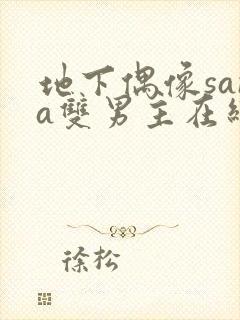 地下偶像sa
a雙男主在
徐松